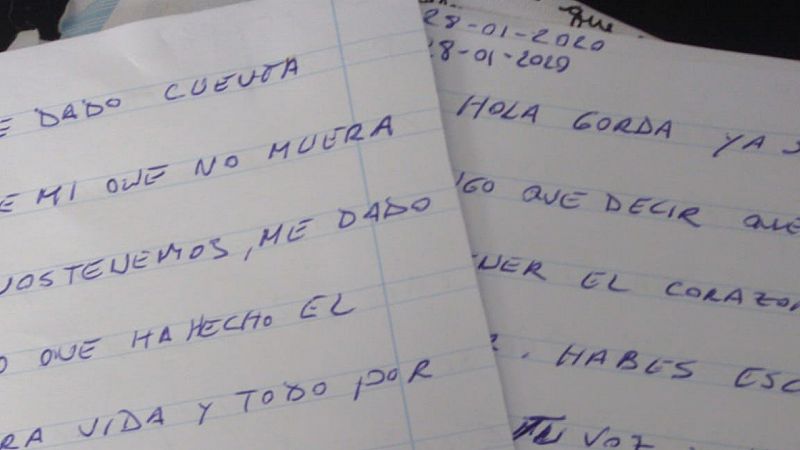 E DADO CUENTA
E MI QUE NO MUERA
NOS TENEMOS, ME DADO
O QUE HA HECHO EL
RA VIDA Y TODO POR
que
28-01-2020
28-01-2020
HOLA GORDA YA S
GO QUE DECIR QUE
NER EL CORAZON
. HABES ESC
TU VOZ